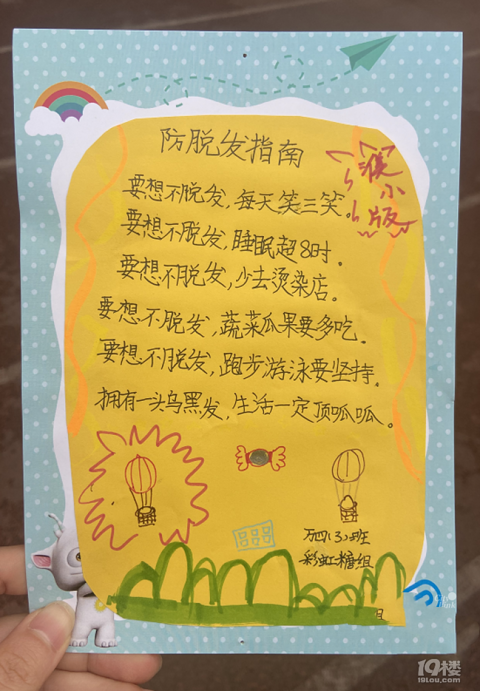 防脱发指南
小
版
要想不脱发,每天笑三笑。
要想不脱发,睡眠超8时。
要想不脱发,少去烫染店。
要想不脱发,蔬菜瓜果要多吃。
要想不脱发,跑步游泳要坚持。
拥有一头乌黑发,生活一定顶呱呱。
四(3)班
彩虹糖组
19楼
19lou.com